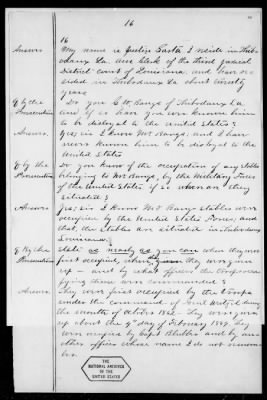 16
16
Answer
My name is Justin Gasta, I reside in Thibo-
daux La. am Clerk of the Third Judicial
District Court of Louisiana, and have re-
sided in Thibodaux La about twenty
years
Q by the
Prosecution
Do you know C W Bangs of Thibodaux La.
and if so have you ever known him
to be disloyal to the United States?
Answer.
Yes, sir I know Mr Bangs, and I have
never known him to be disloyal to the
United States
Q by the
Prosecution
Do you know of the occupation of any stables
belonging to Mr Bangs, by the Military Forces
of the United States, if so when are they
situated?
Answer
Yes, sir I know Mr Bangs stables were
occupied by the United States Forces, and
that, the Stables are situated in Thibodaux
Louisiana.
Q by the
Prosecution
State as nearly as you can when they were
first occupied, when they were given
up — and by what officers the troops occu-
pying them were commanded?
Answer
They were first occupied by the troops
under the command of Genl Weitzel during
the month of October 1862. They were given
up about the 9th day of February 1864. They
were occupied by Capt and by an-
other officer whose name I do not remem-
ber.
THE NATIONAL ARCHIVES
OF THE
UNITED STATES